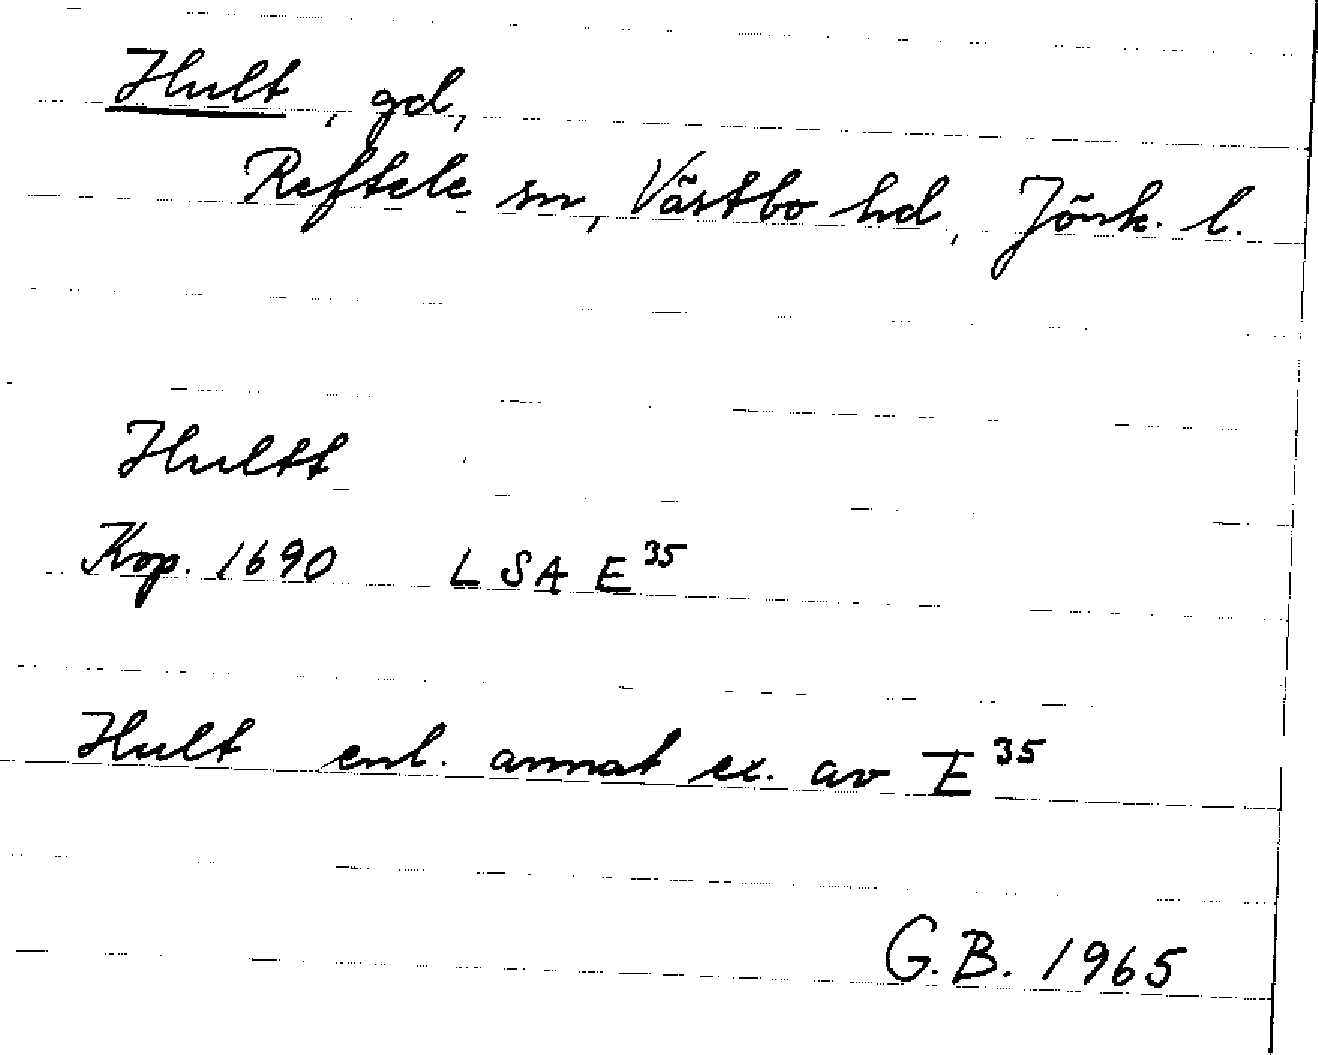 Hult, gd,
Reftele sn, Västbo hd, Jönk. l.
Hultt
Kop. 1690 LSA E³⁵
Hult enl. annat ex. av E³⁵
G.B. 1965